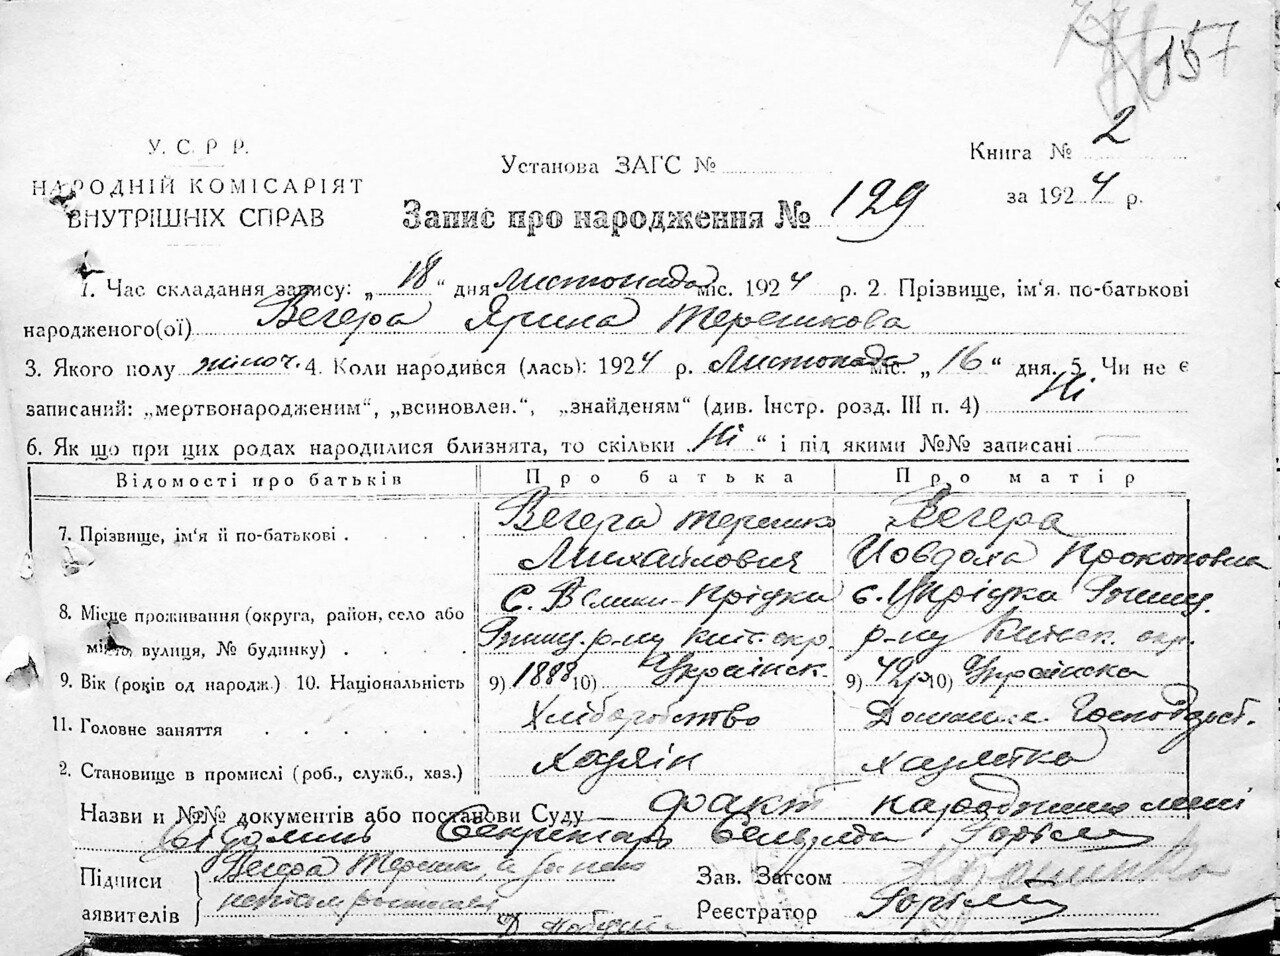 157
У. С. Р Р.
НАРОДНІЙ КОМІСАРІЯТ
ВНУТРІШНІХ СПРАВ
Установа ЗАГС №
Книга № 2
за 1924 р.
Запис про народження № 129
1. Час складання запису: „ 18 " дня листопада міс. 1924 р. 2. Прізвище, ім'я. по-батькові
народженого(ої) Вегера Ярина Терешкова
3. Якого полу жіноч. 4. Коли народився (лась): 1924 р. Листопада міс. „ 16 " дня. 5. Чи не є
записаний: „мертвонародженим", „всиновлен.", „знайденям" (див. Інстр. розд. III п. 4) Ні
6. Як що при цих родах народилися близнята, то скільки Ні " і під якими №№ записані
Відомості про батьків Про батька Про матір
7. Прізвище, ім'я й по-батькові . Вегера Терешко Вегера
Михайлович Йовдоха Прокоповна
8. Місце проживання (округа, район, село або С. Велика-Прідка с.
місто, вулиця, № будинку) . р-ну Київ. окр. р-ну Київск. окр.
9. Вік (років од народж.) 10. Національність 9) 1888 10) Українск. 9) 42р 10) Українска
11. Головне заняття Хліборобство Домашнє Господарст.
2. Становище в промислі (роб., служб., хаз.) Хазяін хазяйка
Назви и №№ документів або постанови Суду факт народження мені
відомий Секретарь Сельради
Підписи Вегера Терешк, а за його
аявителів неписьм росписався
Зав. Загсом
Реєстратор